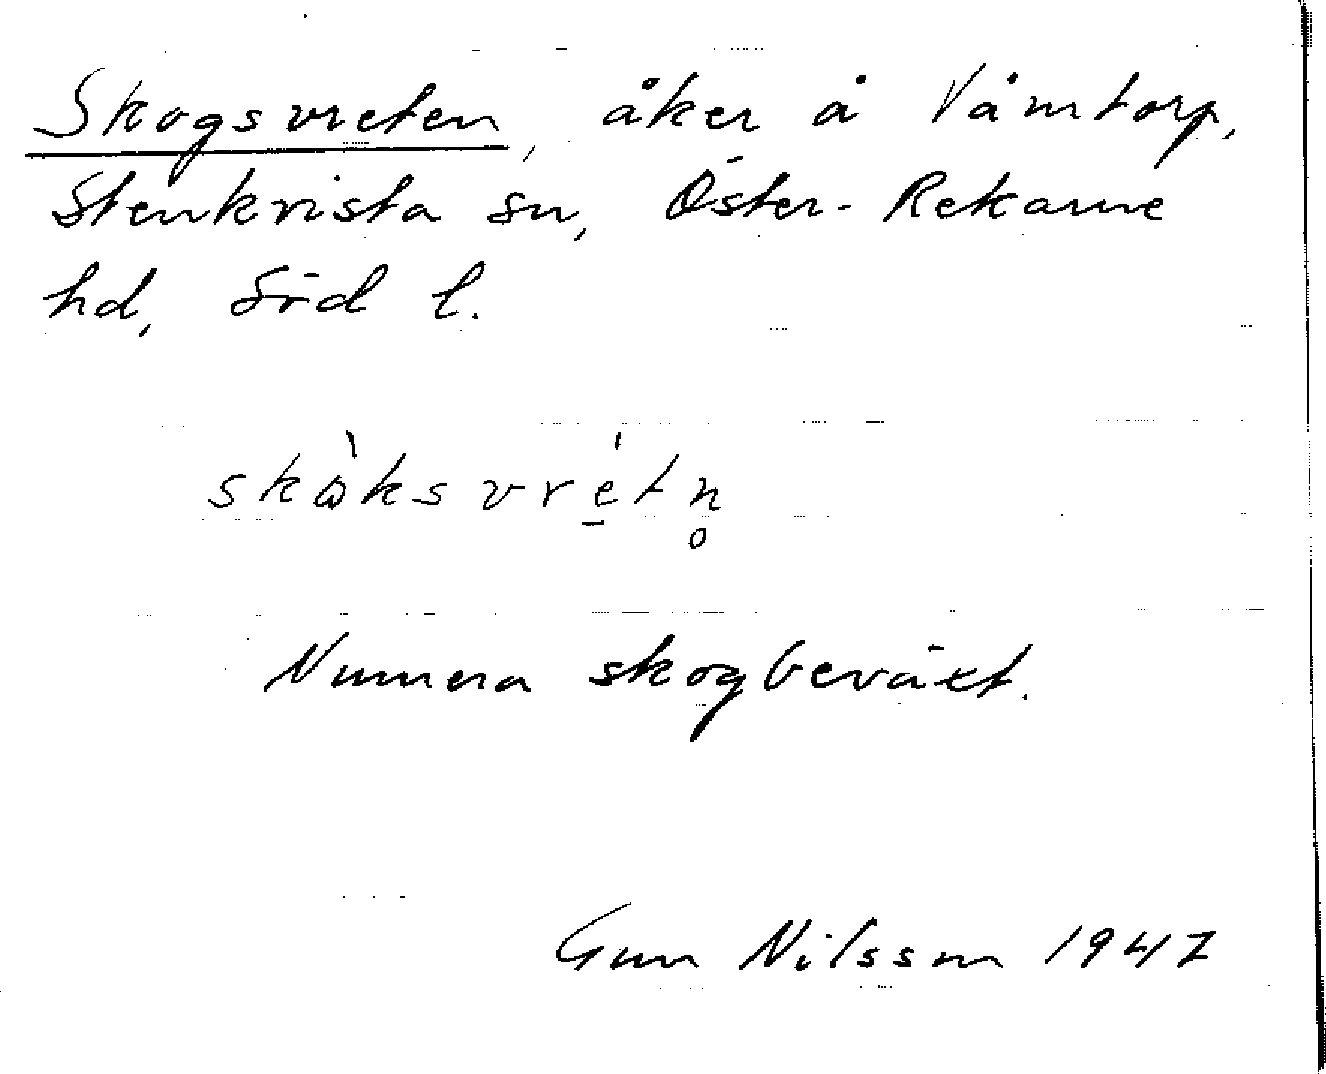 Skogsvreten, åker å Våmtorp,
Stenkvista sn, Öster-Rekarne
hd, Söd l.
Numera skogbeväxt.
Gun Nilsson 1947